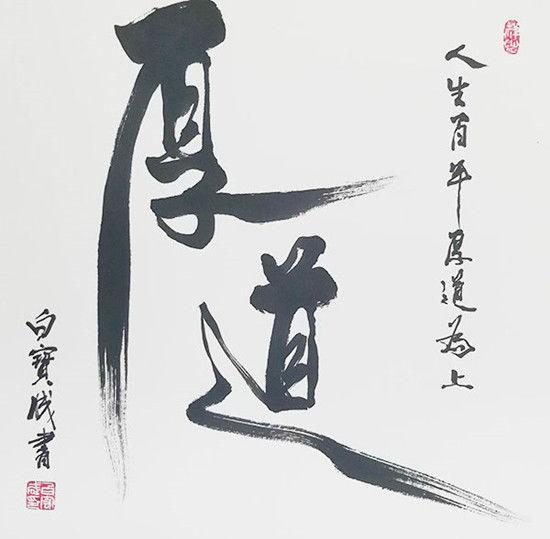 人生百年厚道為上
厚道
白寶成書